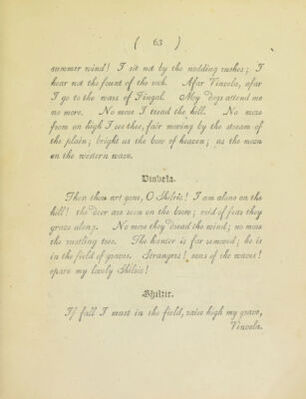 ( 63 )
summer wind! I sit not by the nodding rushes; I
hear not the fount of the rock. Afar Vinvela, afar
I go to the wars of Fingal. My dogs attend me
no more. No more I tread the hill. No more
from on high I see thee, fair moving by the stream of
the plain; bright as the bow of heaven; as the moon
on the western wave.
Vinvela.
Then thou art gone, O Shilric! I am alone on the
hill! the deer are seen on the brow; void of fear they
graze along. No more they dread the wind; no more
the rustling tree. The hunter is far removed; he is
in the field of graves. Strangers! sons of the waves!
spare my lovely Shilric!
Shilric.
If fall I must in the field, raise high my grave,
Vinvela.